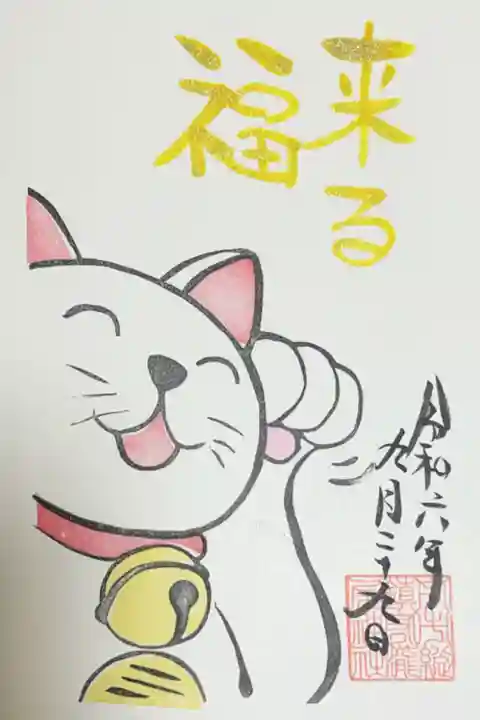 来る
福
令和六年
九月二十九日